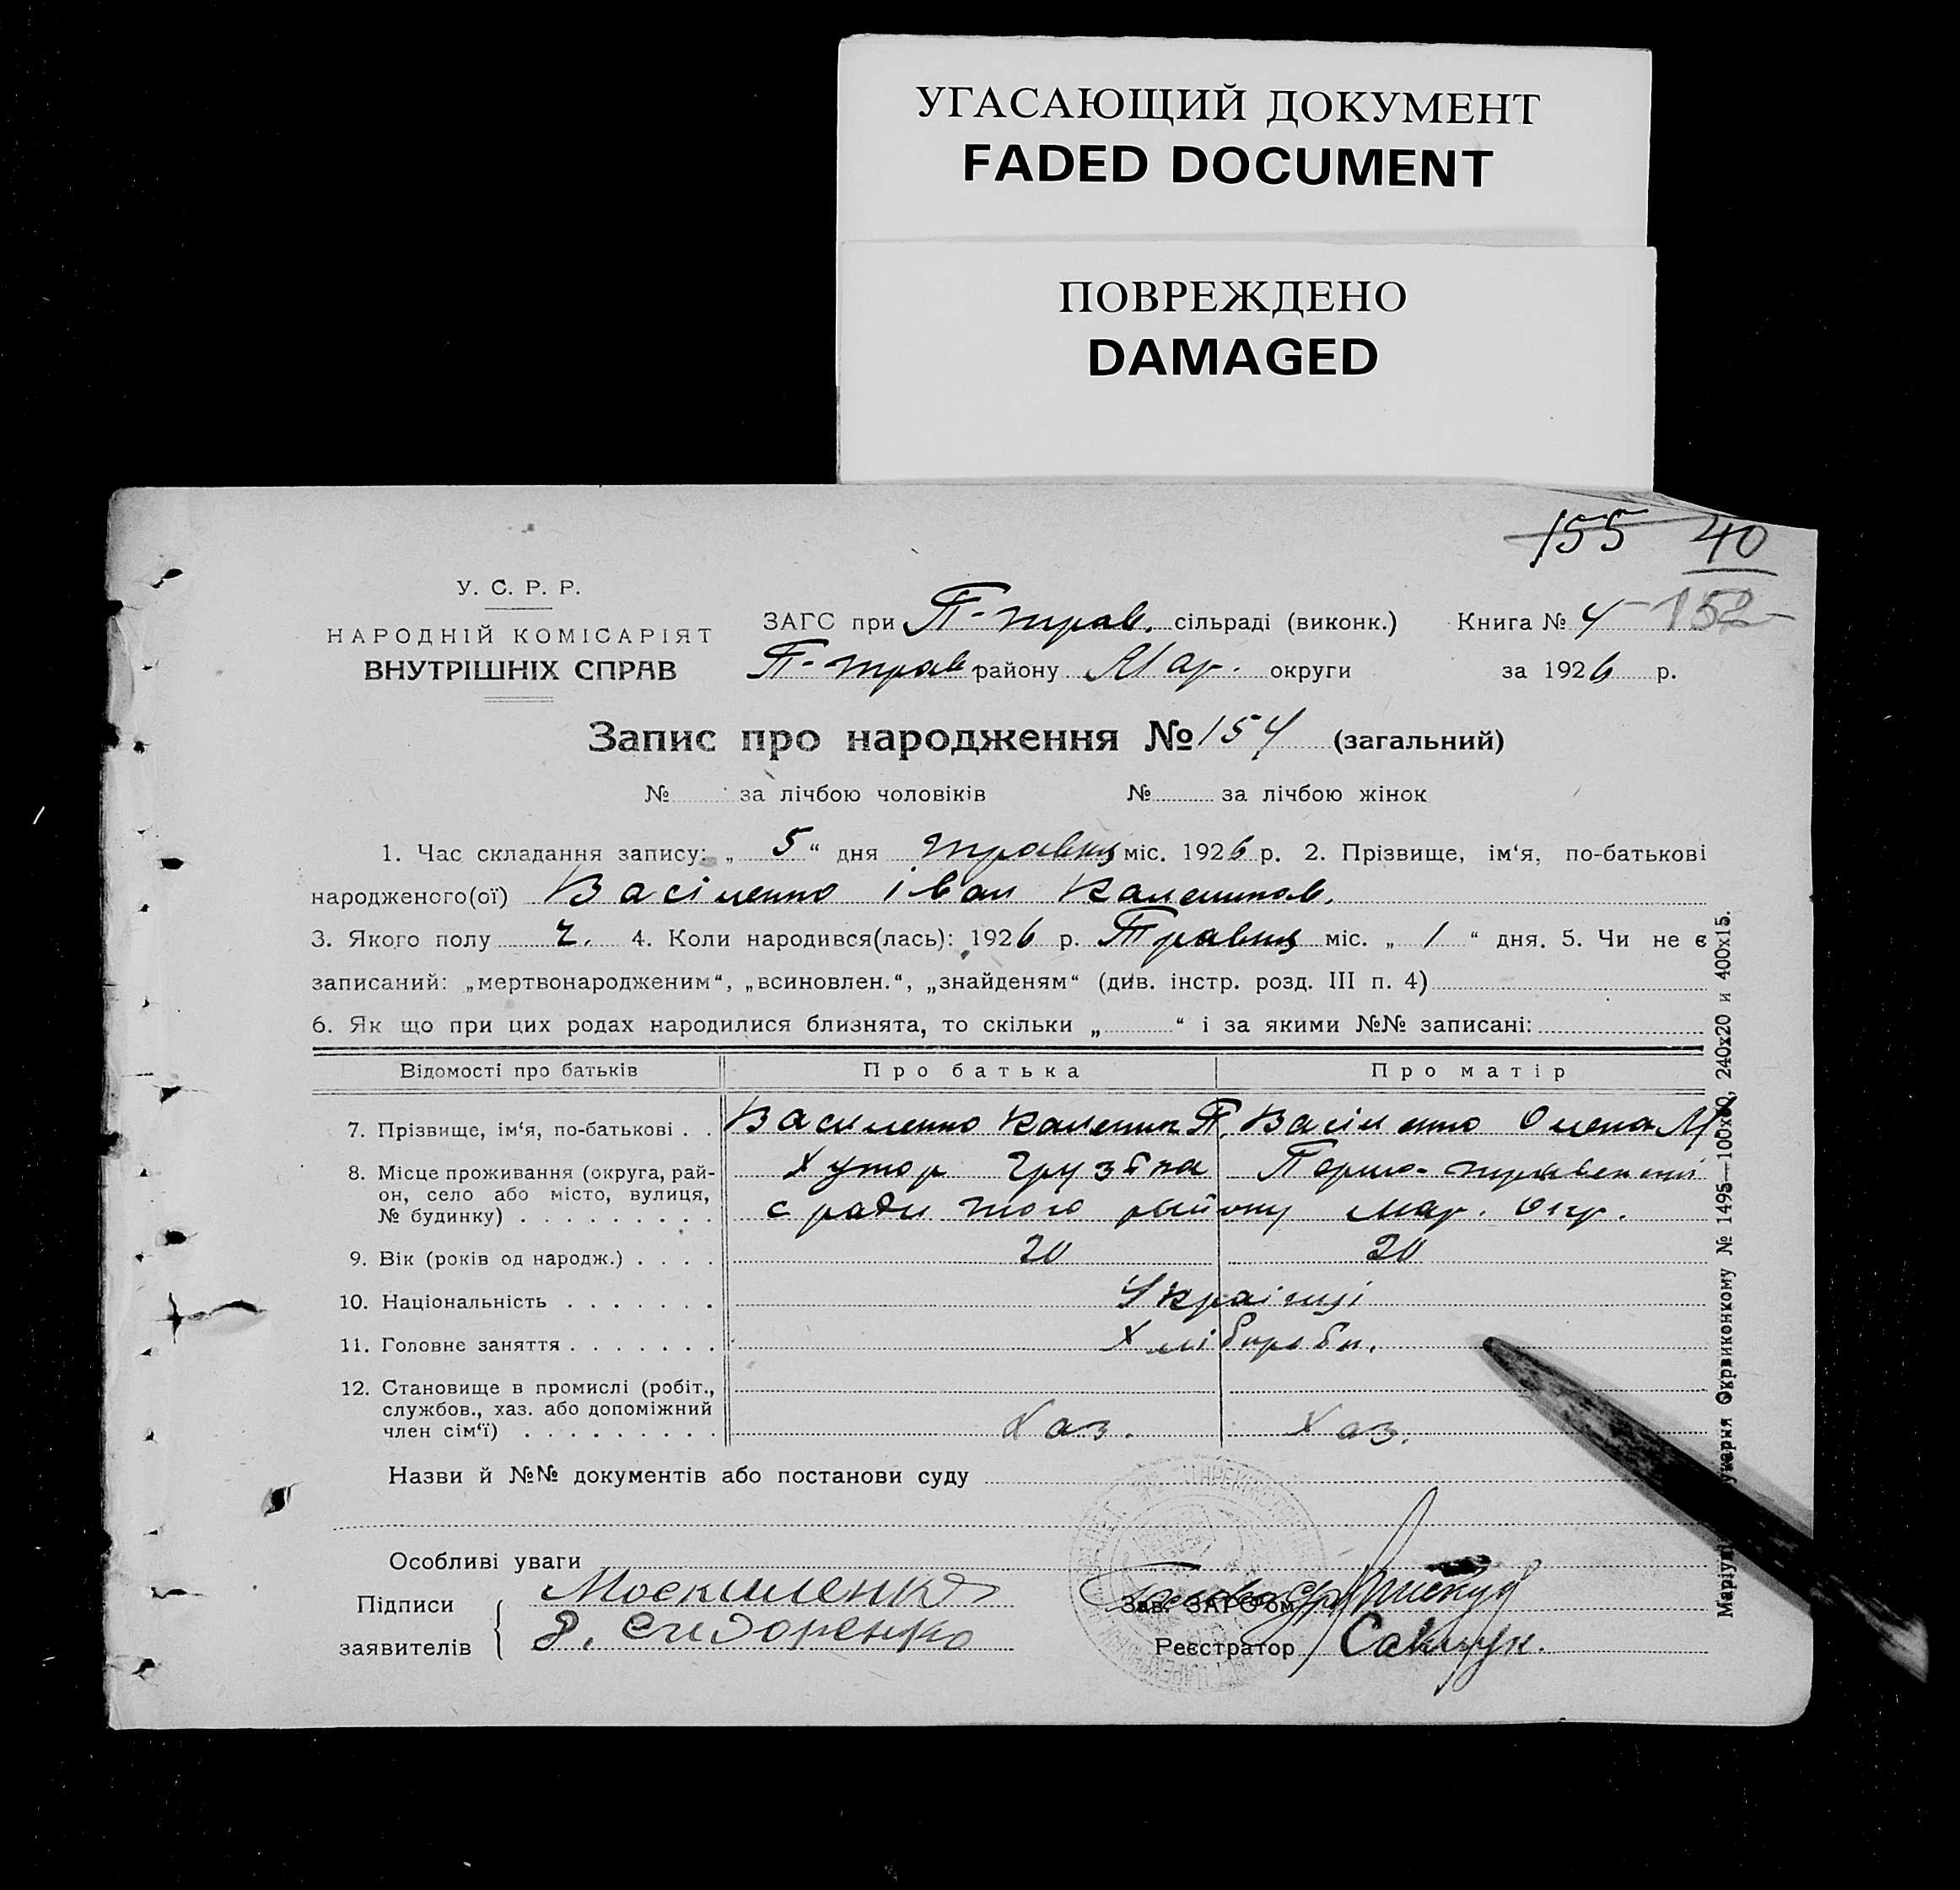 УГАСАЮЩИЙ ДОКУМЕНТ
FADED DOCUMENT
ПОВРЕЖДЕНО
DAMAGED
155 40
152
У. С. Р. Р.
НАРОДНІЙ КОМІСАРІЯТ
ВНУТРІШНІХ СПРАВ
ЗАГС при П-трав. сільраді (виконк.) Книга № 4
П-трав району Мар. округи за 1926 р.
Запис про народження № 154 (загальний)
№ за лічбою чоловіків № за лічбою жінок
1. Час складання запису: „ 5 “ дня травня міс. 1926 р. 2. Прізвище, ім‘я, по-батькові
народженого(ої) Васіленко Іван Калеников.
3. Якого полу ч. 4. Коли народився(лась): 1926 р. Травня міс. „ 1 “ дня. 5. Чи не є
записаний: „мертвонародженим“, „всиновлен.“, „знайденям“ (див. інстр. розд. III п. 4)
6. Як що при цих родах народилися близнята, то скільки „ “ і за якими №№ записані:
Відомості про батьків Про батька Про матір
7. Прізвище, ім‘я, по-батькові . . Василенко Каленик П. Васіленко Олена М
8. Місце проживання (округа, рай- Хутор Грузька Перто-травенської
он, село або місто, вулиця, с ради того району мар. окр.
№ будинку) . . . . . . . . .
9. Вік (років од народж.) . . . . 20 20
10. Національність . . . . . . . Українці
11. Головне заняття . . . . . . . Хлібороби.
12. Становище в промислі (робіт.,
службов., хаз. або допоміжний
член сім‘ї) . . . . . . . . . Хаз. Хаз.
Назви й №№ документів або постанови суду
Особливі уваги
Підписи Москаленко Зав. ЗАГС‘ом
заявителів Ф. Сидоренко Реєстратор Савчук.
Окрвиконкому № 1495—100х60, 240х20 и 400х15.